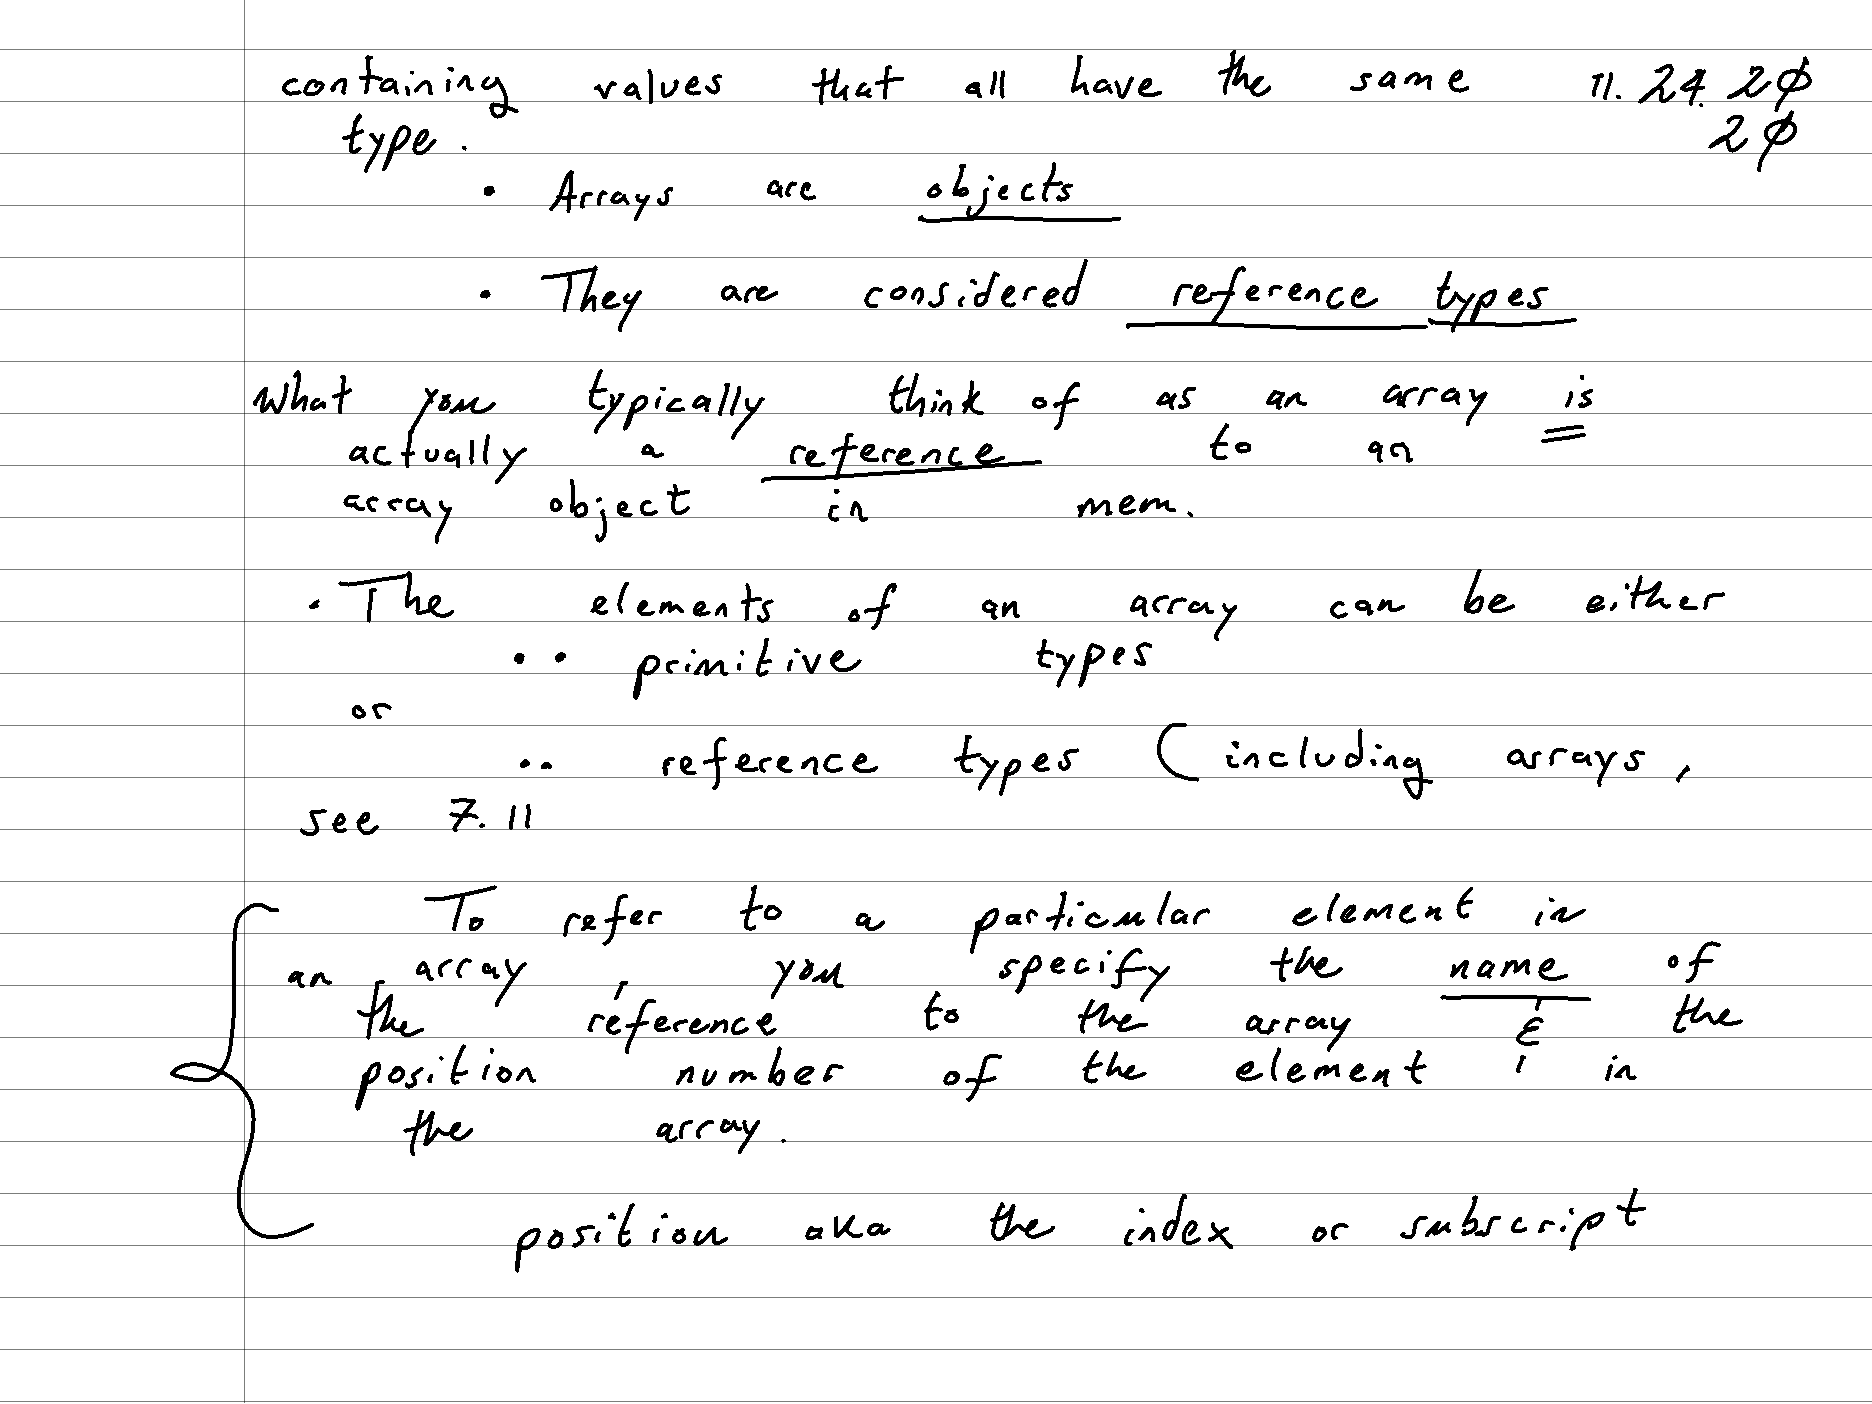 containing values that all have the same 11.24.20
type. 20
• Arrays are objects
• They are considered reference types
What you typically think of as an array is
actually a reference to an
array object in mem.
• The elements of an array can be either
•• primitive types
or
•• reference types (including arrays,
see 7.11
To refer to a particular element in
an array, you specify the name of
the reference to the array & the
position number of the element in
the array.
position aka the index or subscript